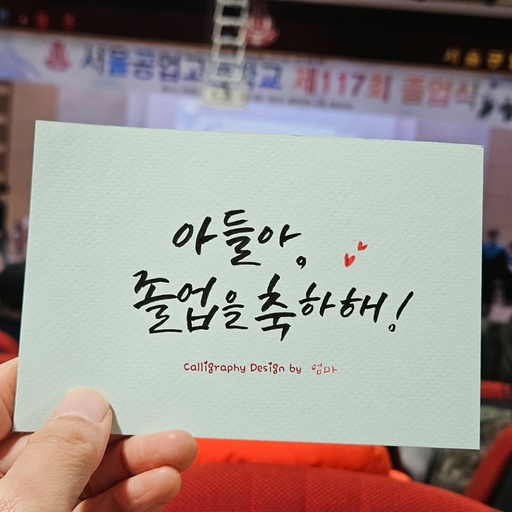 서울공업고등학교 제117회 졸업식
아들아,
졸업을 축하해!
Calligraphy Design by 엄마